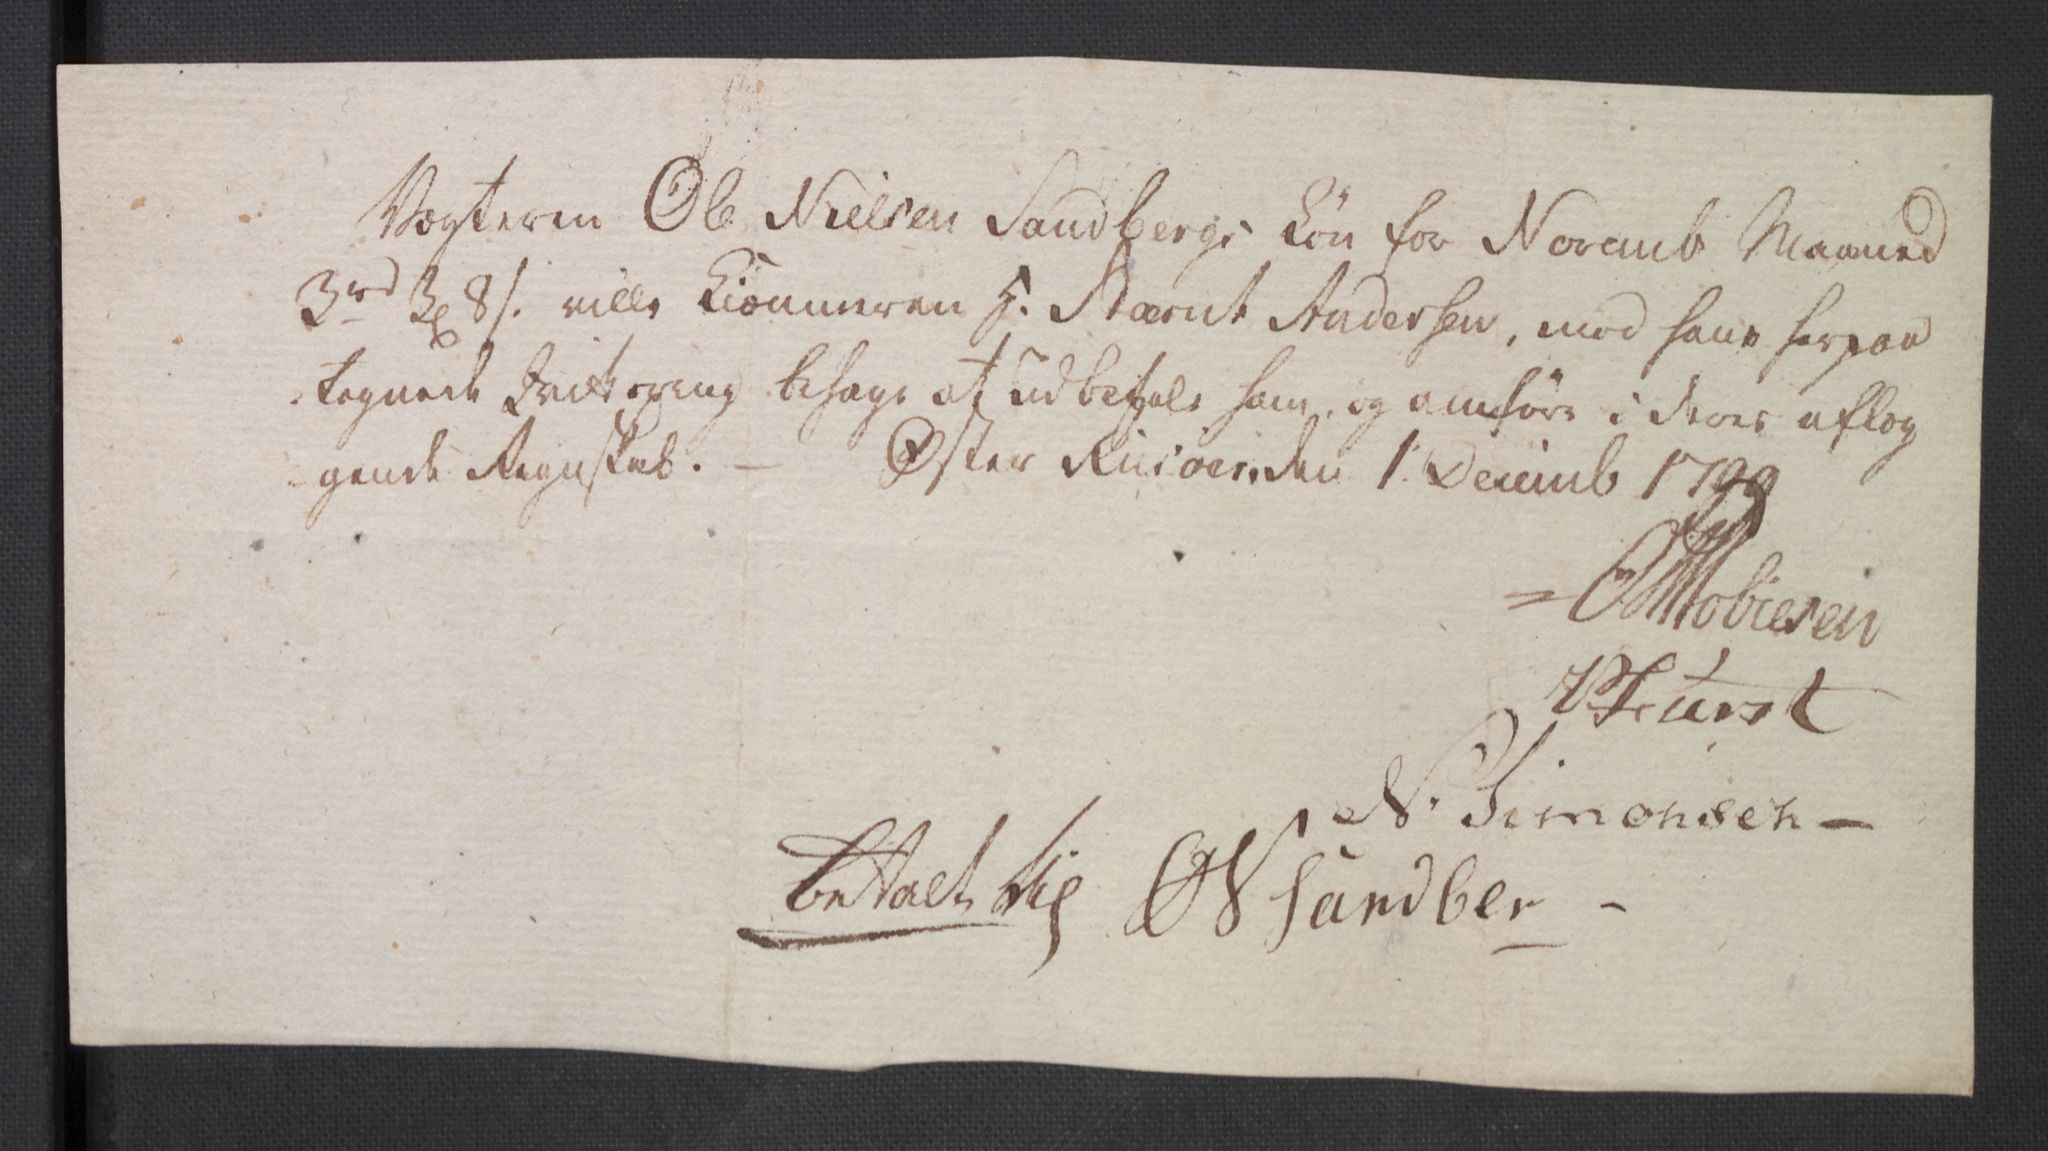 Vægteren Ole Nielsen Sandbergs Løn for Novemb Maaned
3rd 8s. ville Kiæmneren H. Andersen, mod hans herpaa
tegnede Qvittering behage at udbetale ham, og anføre i deres aflæg
gende Regnskab. — Øster Riisøer, den 1. Decemb 1799
Tobiesen
Fürst
N. Simonsen —
betalt ON Sandber -